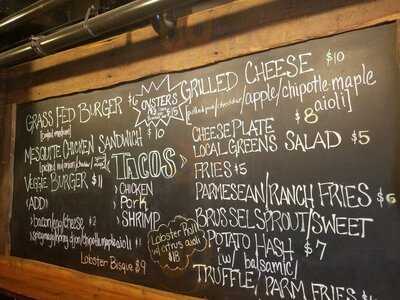 GRASS FED BURGER $6
[baked medium]
MESQUITE CHICKEN SANDWICH $10
VEGGIE BURGER $11
(ADD)
> bacon/egg/cheese $2
Lobster Bisque $9
OYSTERS
TACOS
> CHICKEN
> PORK
> SHRIMP
Lobster Roll
w/ citrus aioli
$18
GRILLED CHEESE $10
/apple/chipotle-maple
aioli]
CHEESE PLATE $8
LOCAL GREENS SALAD $5
FRIES $5
PARMESEAN/RANCH FRIES $6
BRUSSELSPROUT/SWEET
POTATO HASH $7
[w/ balsamic]
TRUFFLE/PARM FRIES